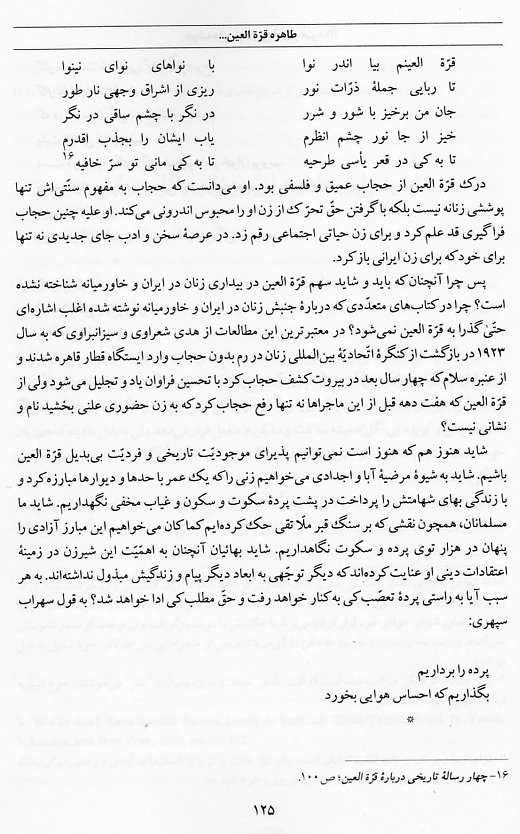 طاهره قرّة العین...
قرّة العینم بیا اندر نوا با نواهای نوای نینوا
تا ربایی جملۀ ذرّات نور ریزی از اشراق وجهی نار طور
جان من برخیز با شور و شرر در نگر با چشم ساقی در نگر
خیز از جا نور چشم انظرم یاب ایشان را بجذب اقدرم
تا به کی در قعر یأسی طرحیه تا به کی مانی تو سرّ خافیه۱۶
درک قرّة العین از حجاب عمیق و فلسفی بود. او می‌دانست که حجاب به مفهوم سنّتی‌اش تنها
پوششی زنانه نیست بلکه با گرفتن حقّ تحرّک از زن او را محبوس اندرونی می‌کند. او علیه چنین حجاب
فراگیری قد علم کرد و برای زن حیاتی اجتماعی رقم زد. در عرصۀ سخن و ادب جای جدیدی نه تنها
برای خود که برای زن ایرانی باز کرد.
پس چرا آنچنان که باید و شاید سهم قرّة العین در بیداری زنان در ایران و خاورمیانه شناخته نشده
است؟ چرا در کتاب‌های متعدّدی که دربارۀ جنبش زنان در ایران و خاورمیانه نوشته شده اغلب اشاره‌ای
حتّیٰ گذرا به قرّة العین نمی‌شود؟ در معتبرترین این مطالعات از هدی شعراوی و سیزانبراوی که به سال
۱۹۲۳ در بازگشت از کنگرۀ اتّحادیّۀ بین‌المللی زنان در رم بدون حجاب وارد ایستگاه قطار قاهره شدند و
از عنبره سلام که چهار سال بعد در بیروت کشف حجاب کرد با تحسین فراوان یاد و تجلیل می‌شود ولی از
قرّة العین که هفت دهه قبل از این ماجراها نه تنها رفع حجاب کرد که به زن حضوری علنی بخشید نام و
نشانی نیست؟
شاید هنوز هم که هنوز است نمی‌توانیم پذیرای موجودیّت تاریخی و فردیّت بی‌بدیل قرّة العین
باشیم. شاید به شیوۀ مرضیۀ آبا و اجدادی می‌خواهیم زنی را که یک عمر با حدها و دیوارها مبارزه کرد و
با زندگی بهای شهامتش را پرداخت در پشت پردۀ سکوت و سکون و غیاب مخفی نگهداریم. شاید ما
مسلمانان، همچون نقشی که بر سنگ قبر ملّا تقی حک کرده‌ایم کما کان می‌خواهیم این مبارز آزادی را
پنهان در هزار توی پرده و سکوت نگاهداریم. شاید بهائیان آنچنان به اهمّیّت این شیرزن در زمینۀ
اعتقادات دینی او عنایت کرده‌اند که دیگر توجّهی به ابعاد دیگر پیام و زندگیش مبذول نداشته‌اند. به هر
سبب آیا به راستی پردۀ تعصّب کی به کنار خواهد رفت و حقّ مطلب کی ادا خواهد شد؟ به قول سهراب
سپهری:
پرده را برداریم
بگذاریم که احساس هوایی بخورد
*
۱۶- چهار رسالۀ تاریخی دربارۀ قرّة العین؛ ص ۱۰۰.
۱۲۵